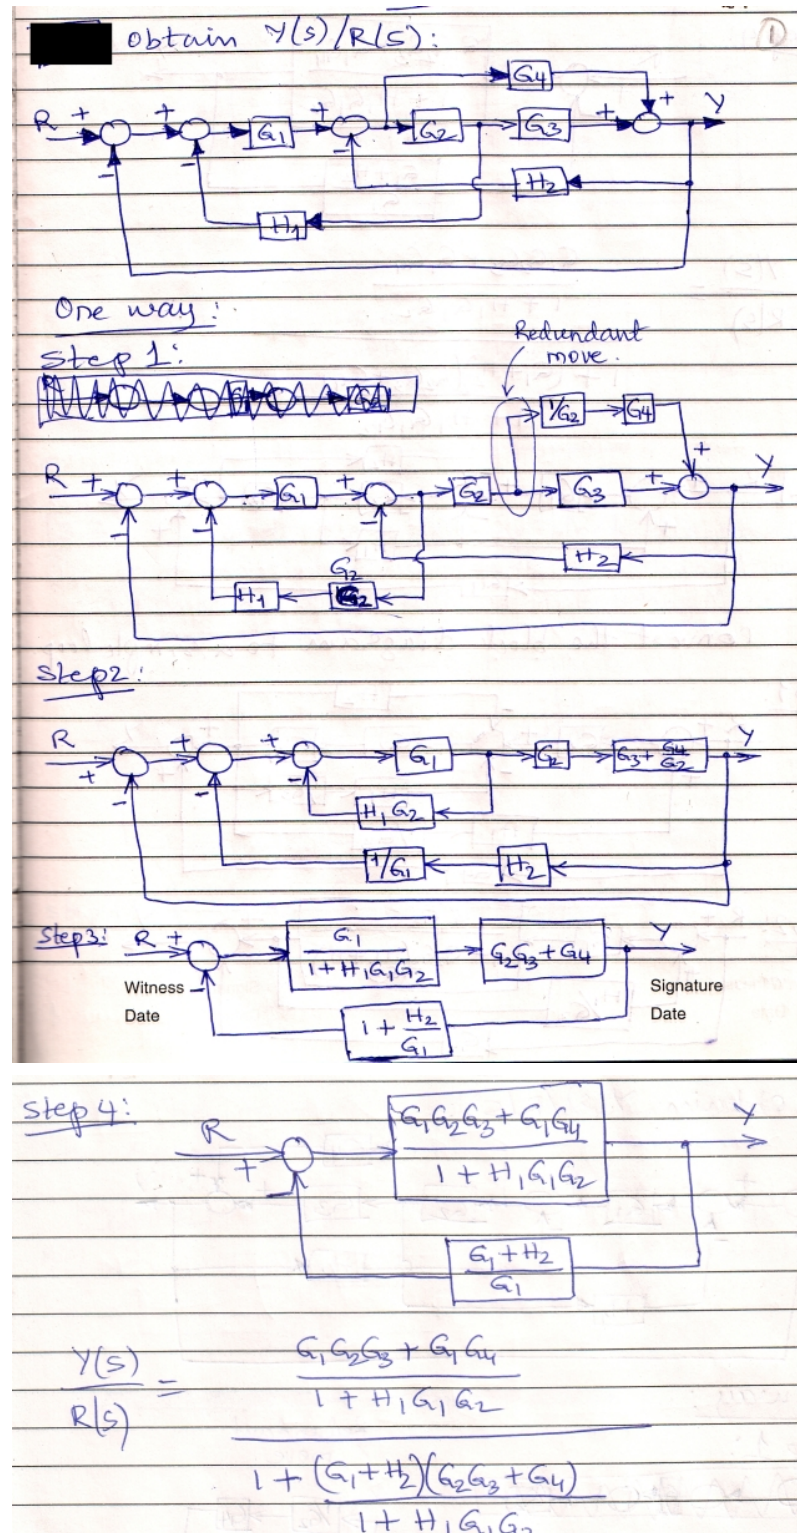 Obtain Y(s)/R(s): 1
G4
R + + G1 + G2 G3 + + Y
- - -
H2
H1
One way:
Redundant
move.
Step 1:
1/G2 G4
R + + G1 + G2 G3 + + Y
- - -
H2
G2
H1
Step2:
R + + + G1 G2 G3 + G4/G2 Y
- - -
H1 G2
1/G1 H2
Step3: R + G1/(1 + H1G1G2) G2G3 + G4 Y
-
Witness Signature
Date Date
1 + H2/G1
Step 4:
R + (G1G2G3 + G1G4)/(1 + H1G1G2) Y
-
(G1 + H2)/G1
Y(s)/R(s) = ((G1G2G3 + G1G4)/(1 + H1G1G2))/(1 + (G1 + H2)(G2G3 + G4)/(1 + H1G1G2))